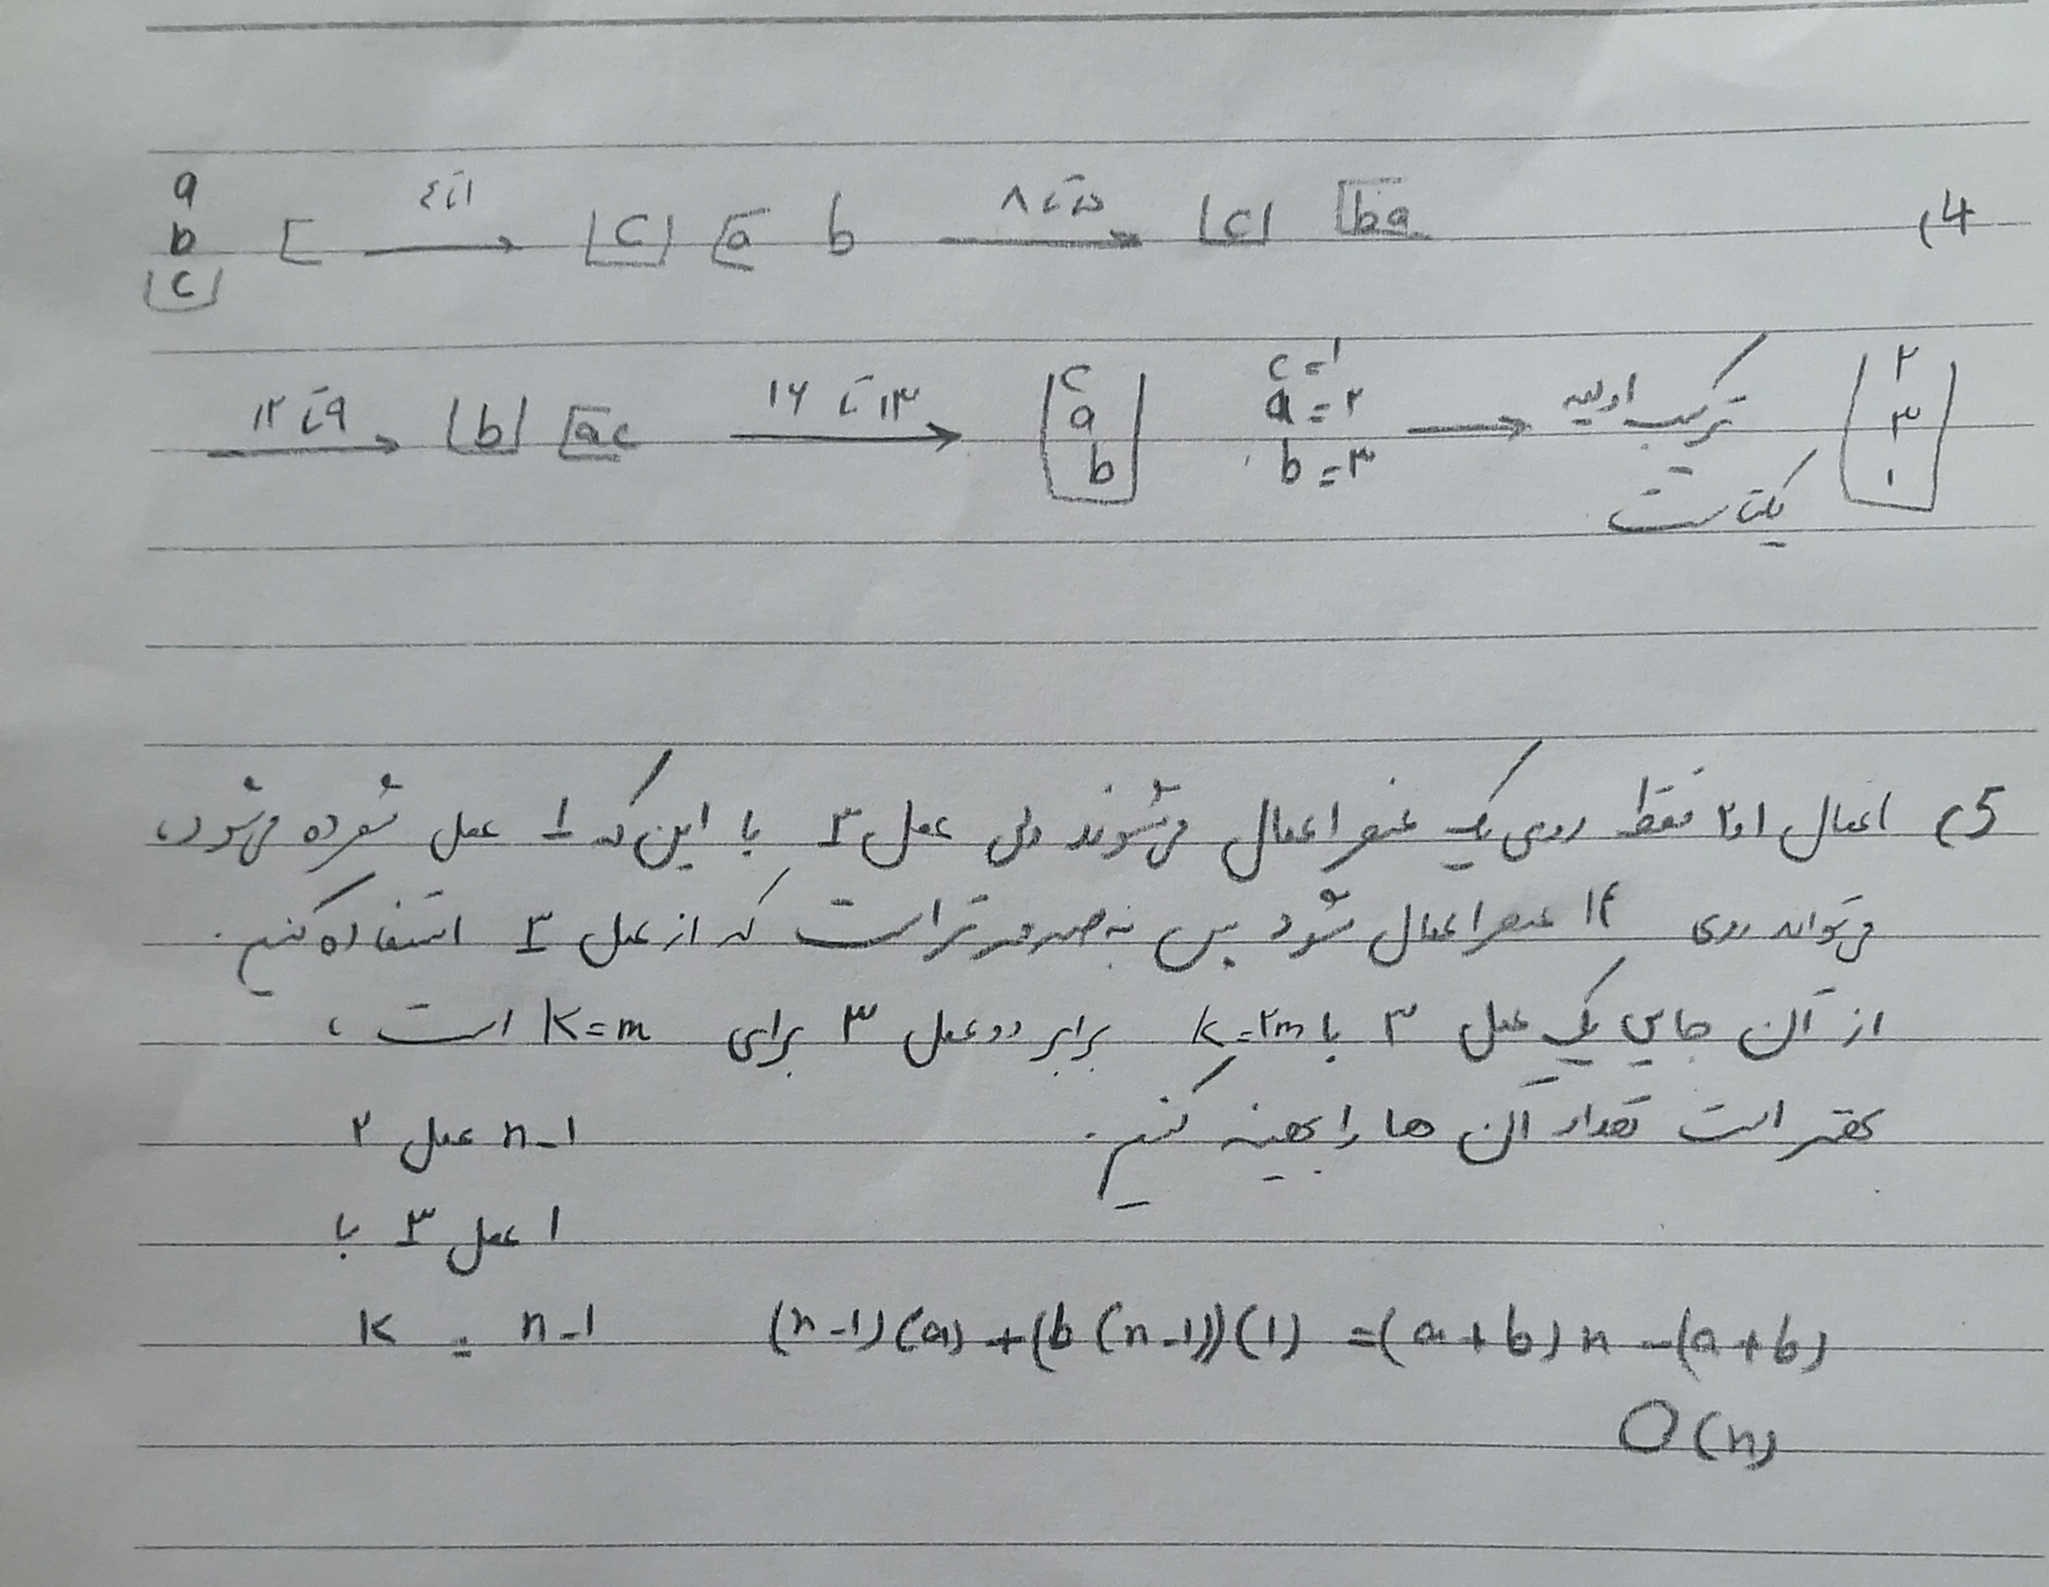 4)
a
b [ ۱تا۴ → [c] [a b ۵تا۸ → [c] [ba
[c]
۹تا۱۲ → [b] [ac ۱۳ تا ۱۶ → [c a b] c=۱ a=۲ b=۳ → ترکیب اولیه یکتاست [۲ ۳ ۱]
5) اعمال ۱و۲ فقط روی یک عنصر اعمال می‌شوند ولی عمل ۳ با این که ۱ عمل شمرده می‌شود،
می‌تواند روی k عنصر اعمال شود پس به صرفه تر است که از عمل ۳ استفاده کنیم.
از آن جایی یک عمل ۳ با k=۲m برابر دو عمل ۳ برای k=m است،
بهتر است تعداد آن ها را بهینه کنیم.
n-1 عمل ۲
۱ عمل ۳ با
k = n-1 (n-1)(a)+(b(n-1))(1) =(a+b)n -(a+b)
O(n)